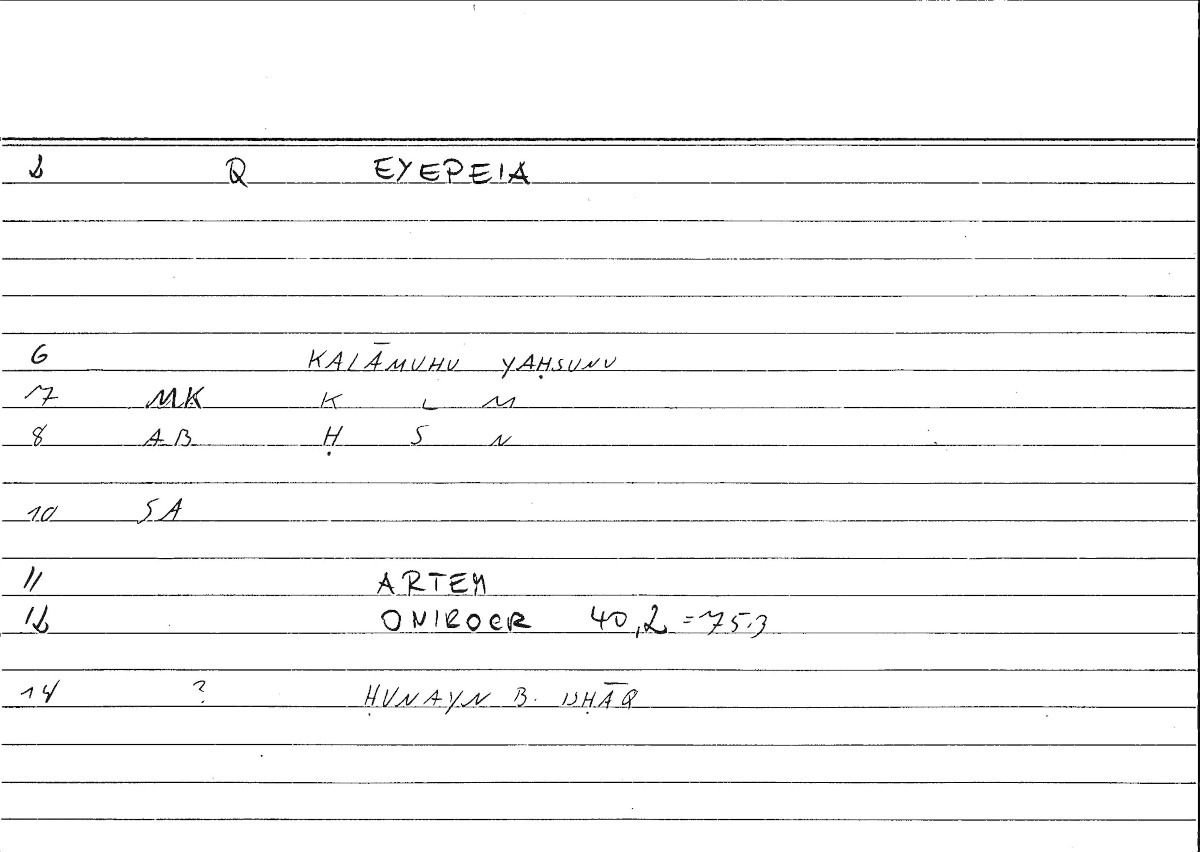 2 Q ΕΥΕΡΕΙΑ
6 KALĀMUHU YAḤSUNU
7 MK K L M
8 AB Ḥ S N
10 SA
11 ARTEM
12 ONIROCR 40,2 = 75.3
14 ? ḤUNAYN B. ISḤĀQ